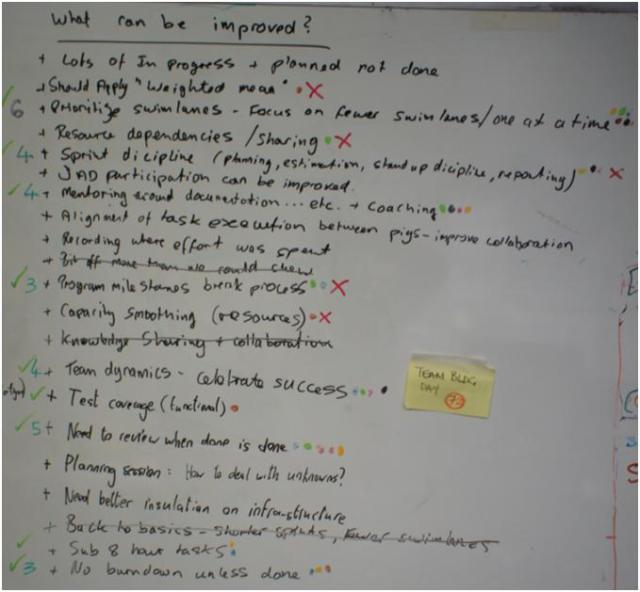 What can be improved?
+ Lots of In progress + planned not done
+ Should Apply "Weighted mean" X
6 + Prioritize swimlanes - Focus on fewer swimlanes/one at a time
+ Resource dependencies / sharing X
4 + Sprint dicipline (planning, estimation, stand up dicipline, reporting) X
+ JAD participation can be improved.
4 + Mentoring around documentation... etc. + coaching
+ Alignment of task execution between pigs - improve collaboration
+ Recording where effort was spent
+ Bit off more than we could chew
3 + Program milestones break process X
+ Capacity smoothing (resources) X
+ Knowledge Sharing + collaboration
4 + Team dynamics - celebrate success
TEAM BLDG
DAY
+ Test coverage (functional)
5 + Need to review when done is done
+ Planning session: How to deal with unknowns?
+ Need better insulation on infra-structure
+ Back to basics - shorter sprints, fewer swimlanes
+ Sub 8 hour tasks
3 + No burndown unless done